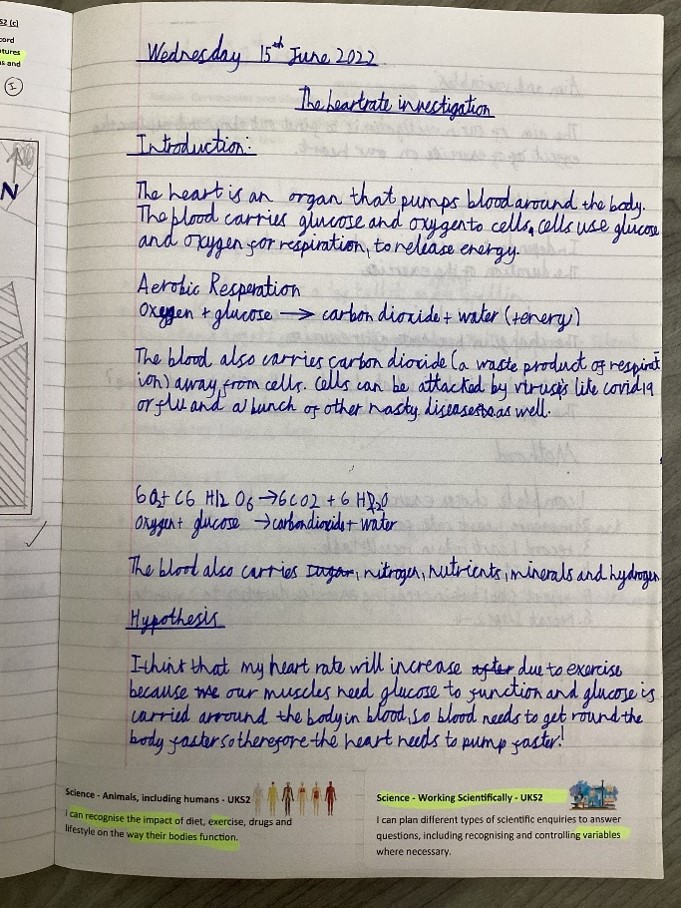 S2 (c)
cord
tures
s and
I
N
Wednesday 15th June 2022
The heartrate investigation
Introduction:
The heart is an organ that pumps blood around the body.
The blood carries glucose and oxygen to cells, cells use glucose
and oxygen for respiration, to release energy.
Aerobic Resperation
Oxygen + glucose → carbon dioxide + water (+enery)
The blood also carries carbon dioxide (a waste product of respirat
ion) away from cells. Cells can be attacked by viruses like covid19
or flu and a bunch of other nasty diseases as well.
6O2+ C6 H12 O6 →6CO2 + 6 H2O
Oxygen+ glucose →carbondioxide+ water
The blood also carries sugar, nitrogen, nutrients, minerals and hydrogen
Hypothesis
I think that my heart rate will increase after due to exercise
because we our muscles need glucose to function and glucose is
carried arround the body in blood, so blood needs to get round the
body faster so therefore the heart needs to pump faster!
Science - Animals, including humans - UKS2
I can recognise the impact of diet, exercise, drugs and
lifestyle on the way their bodies function.
Science - Working Scientifically - UKS2
I can plan different types of scientific enquiries to answer
questions, including recognising and controlling variables
where necessary.